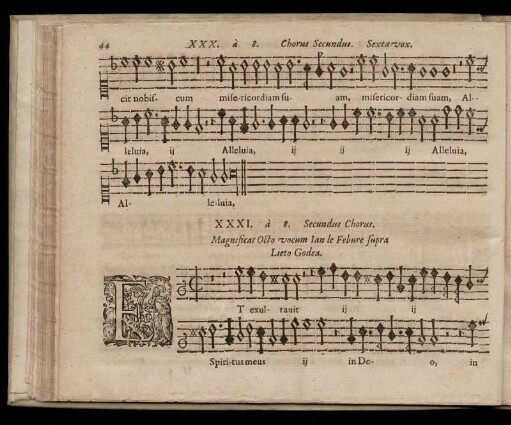 44 XXX. à 8. Chorus Secundus. Sexta vox.
cit nobis- cum mise-ricordiam su- am, misericor- diam suam, Al--
leluia, ij Alleluia, ij ij ij Alleluia,
Al- le-luia,
XXXI. à 8. Secundus Chorus.
Magnificat Octo vocum Ian le Febure supra
Lieto Godea.
ET exul- tauit ij ij
Spiri-tus meus ij in De- o, in